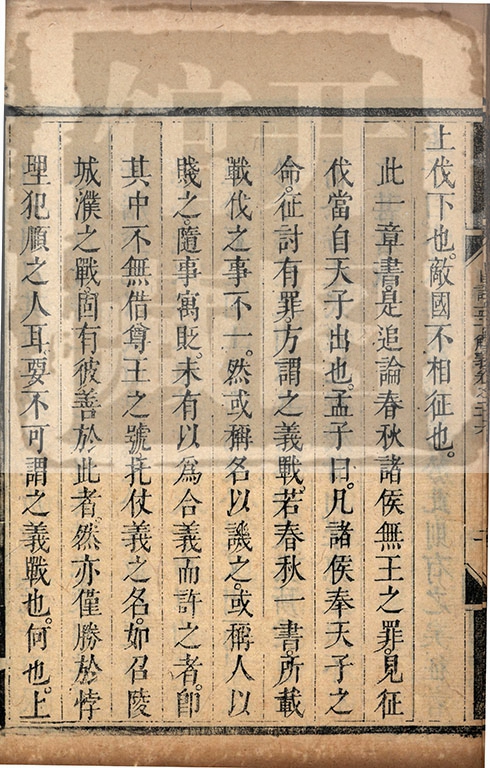 上伐下也。敵國不相征也。
此一章書是追論春秋諸侯無王之罪。見征
伐當自天子出也。孟子曰。凡諸侯奉天子之
命。征討有罪。方謂之義戰。若春秋一書。所載
戰伐之事不一。然或稱名以譏之。或稱人以
賤之。隨事寓貶。未有以爲合義而許之者。卽
其中不無借尊王之號。托仗義之名。如召陵
城濮之戰。固有彼善於此者。然亦僅勝於悖
理犯順之人耳。要不可謂之義戰也。何也。上